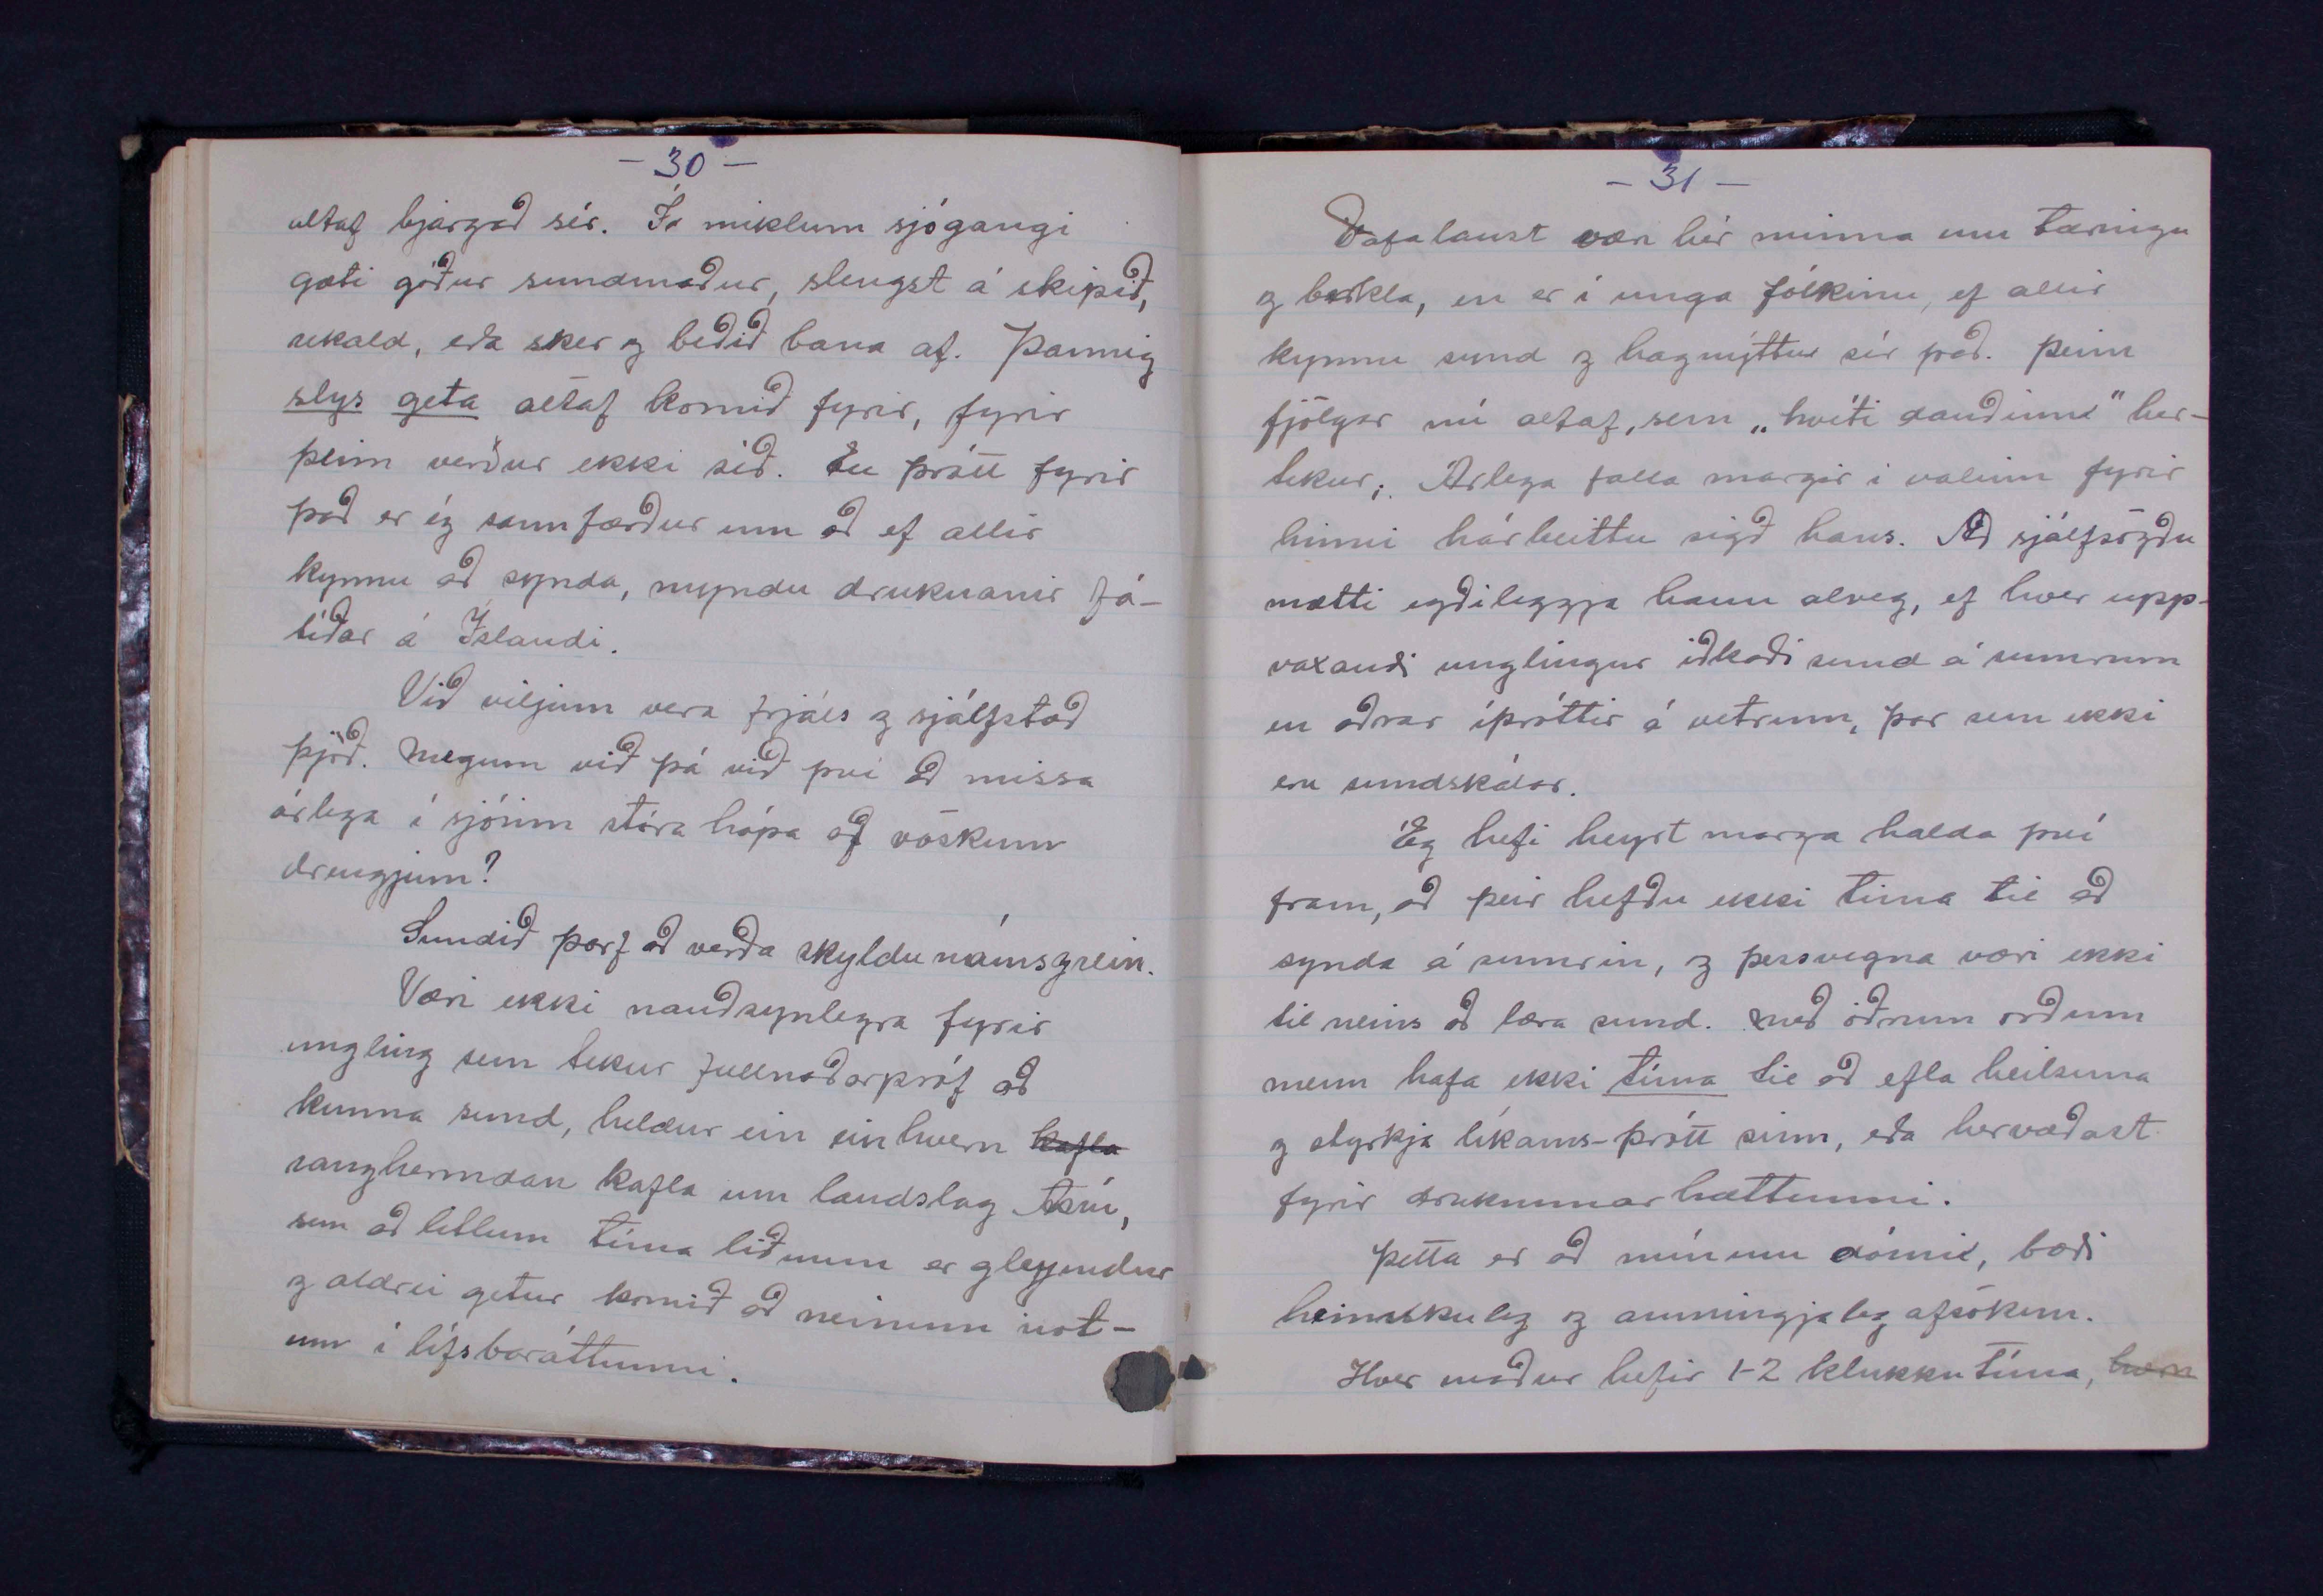 - 30 -
altaf bjargað sér. Í miklum sjógangi
gæti góður sundmaður, slengst á skipið,
rekald, eða sker og beðið bana af. Þannig
slys geta altaf komið fyrir, fyrir
þeim verður ekki séð. En þrátt fyrir
það er ég sannfærður um að ef allir
kynnu að synda, myndu druknanir fá-
tíðar á Íslandi.
Við viljum vera frjáls og sjálfstæð
þjóð. Megum við þá við því að missa
árlega í sjóinn stóra hópa af vöskum
drengjum?
Sundið þarf að verða skyldunámsgrein.
Væri ekki nauðsynlegra fyrir
ungling sem tekur fullnaðarpróf að
kunna sund, heldur ein einhvern kafla
ranghermdan kafla um landslag Asíu,
sem að litlum tíma liðnum er gleymdur
og aldrei getur komið að neinum not-
um í lífsbaráttunni.
- 31 -
Vafalaust væri hér minna um tæringu
og berkla, en er í unga fólkinu, ef allir
kynnu sund og hagnýttu sér það. Þeim
fjölgar nú altaf, sem „hvíti dauðinn" her-
tekur; Árlega falla margir í valinn fyrir
hinni hárbeittu sigð hans. Að sjálfsögðu
mætti eyðileggja hann alveg, ef hver upp-
vaxandi unglingur iðkaði sund á sumrum
en aðrar íþróttir á vetrum, þar sem ekki
eru sundskálar.
Ég hefi heyrt marga halda því
fram, að þeir hefðu ekki tíma til að
synda á sumrin, og þessvegna væri ekki
til neins að læra sund. Með öðrum orðum
menn hafa ekki tíma til að efla heilsuna
og styrkja líkams-þrótt sinn, eða hervæðast
fyrir druknunarhættunni.
Þetta er að mínum dómi, bæði
heimskuleg og aumingjaleg afsökun.
Hver maður hefir 1-2 klukkutíma, hvern